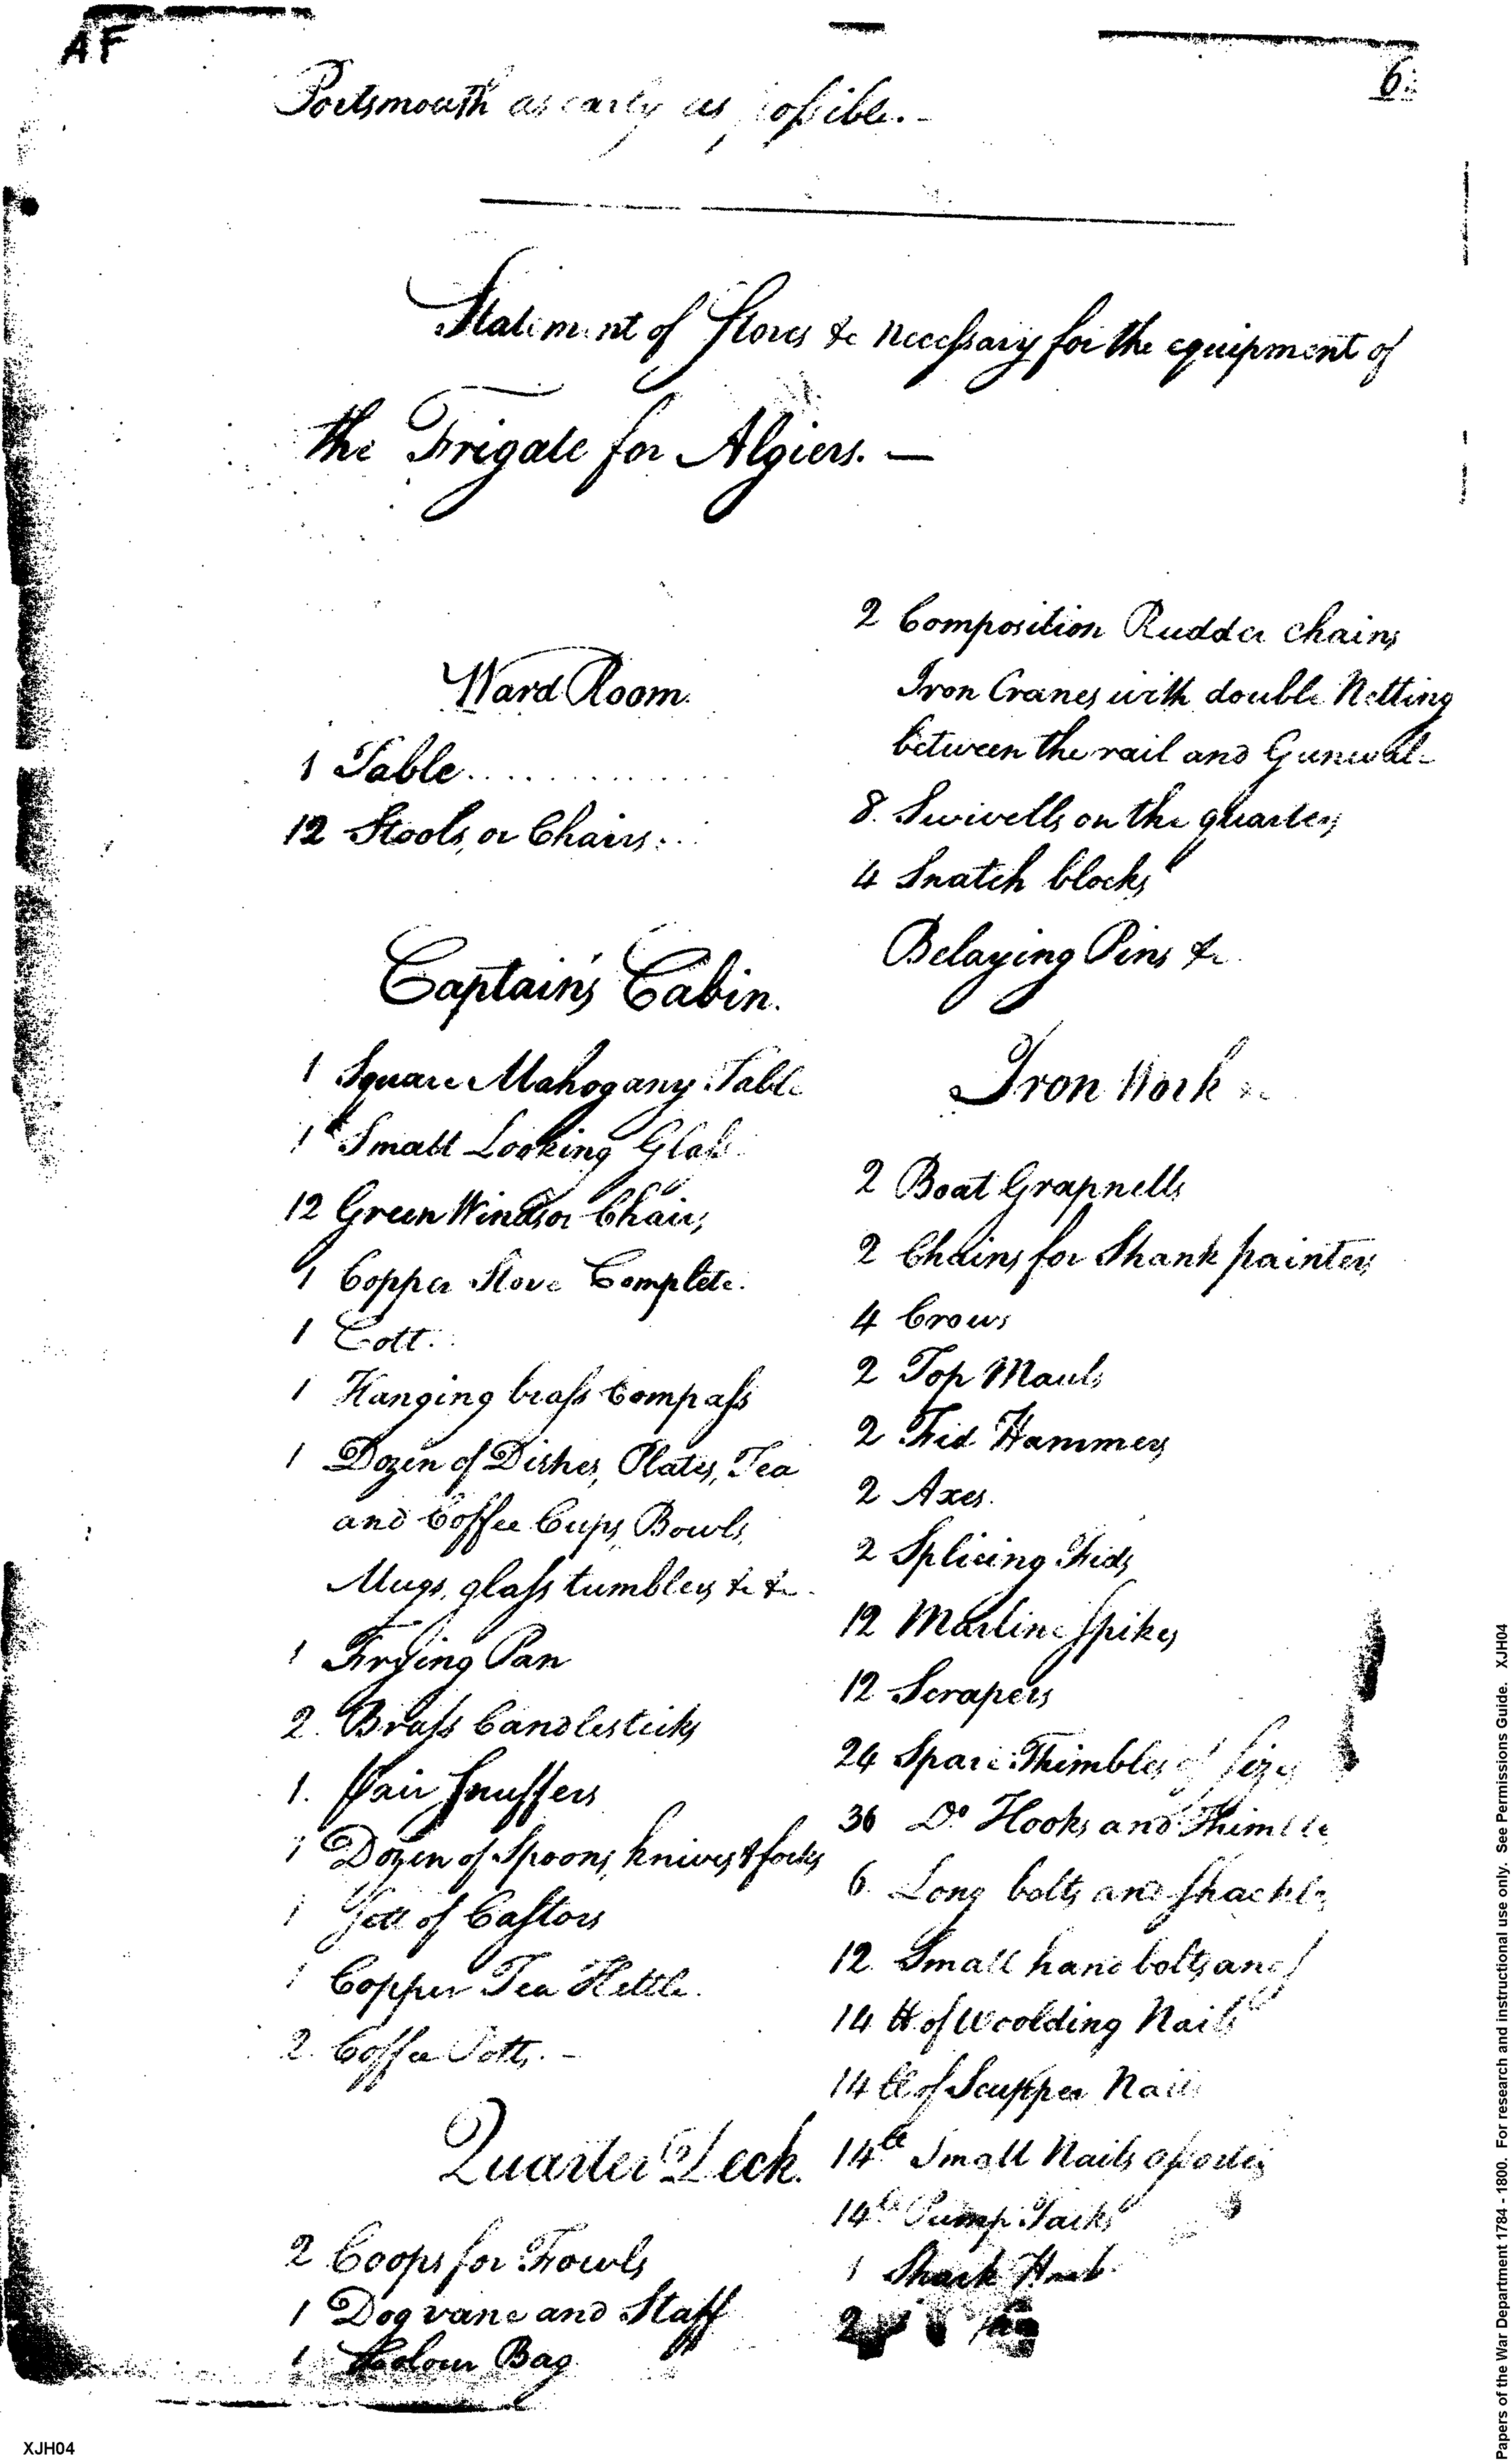 AF
6.
Portsmouth as early as possible. -
Statement of Stores &c necessary for the equipment of
the Frigate for Algiers. —
Ward Room.
1 Table..............
12 Stools, or Chairs...
Captain's Cabin.
1 Square Mahogany Table
1 Small Looking Glass
12 Green Windsor Chairs
1 Copper Stove Complete.
1 Cott.
1 Hanging brass Compass
1 Dozen of Dishes, Plates, Tea
and Coffee Cups, Bowls,
Mugs, glass tumblers &c &c.
1 Frying Pan
2. Brass Candlesticks
1. Pair Snuffers
1 Dozen of Spoons, knives & forks
1 Sett of Castors
1 Copper Tea Kettle.
2 Coffee Potts. -
Quarter Deck.
2 Coops for Fowls
1 Dog vane and Staff
1 Colour Bag
2 Composition Rudder chains
Iron Cranes with double Netting
between the rail and Gunwale
8. Swivells on the quarters
4 Snatch blocks
Belaying Pins &c.
Iron Work &c
2 Boat Grapnells
2 Chains for Shank painters
4 Crows
2 Top Mauls
2 Fid Hammers
2 Axes.
2 Splicing Fids
12 Marline Spikes
12 Scrapers
24 Spare Thimbles of sizes
36 Do Hooks and Thimbles
6. Long bolts and shackles
12 Small hand bolts and
14 lb of Woolding Nails
14 lb of Scupper Nails
14 lb Small Nails assorted
14 lb Pump Tacks
1 Shark Hook
2
Papers of the War Department 1784 - 1800. For research and instructional use only. See Permissions Guide. XJH04
XJH04